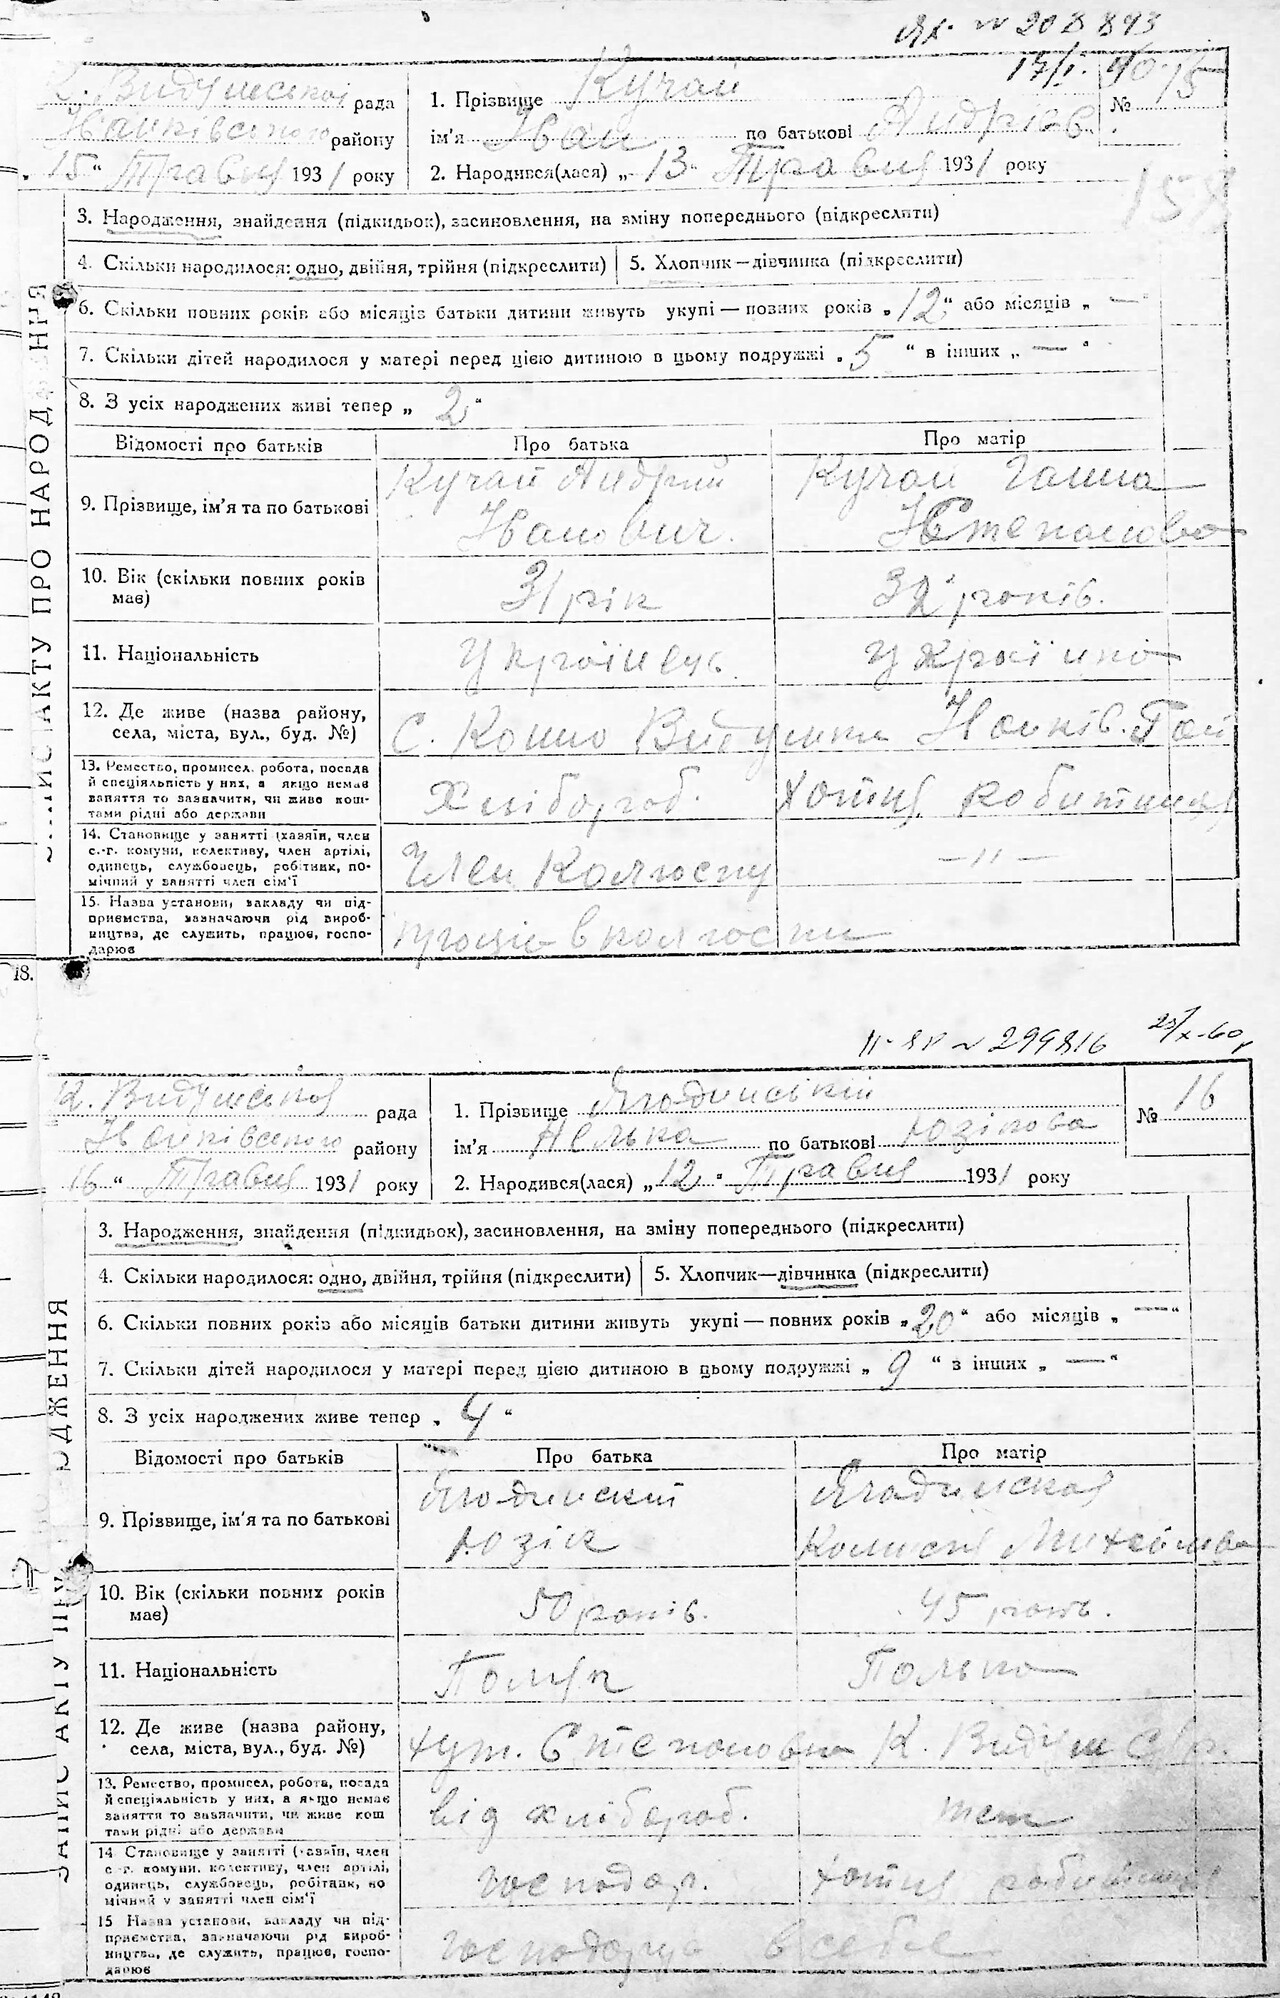 ЯХ № 208893
К. Видумської рада
Іванківського району
„15“ Травня 1931 року
1. Прізвище Кучай
ім'я Іван по батькові Андріїв.
2. Народився(лася) „13“ Травня 1931 року
№ 15
3. Народження, знайдення (підкидьок), засиновлення, на зміну попереднього (підкреслити)
4. Скільки народилося: одно, двійня, трійня (підкреслити)
5. Хлопчик—дівчинка (підкреслити)
6. Скільки повних років або місяців батьки дитини живуть укупі — повних років „12“ або місяців „—“
7. Скільки дітей народилося у матері перед цією дитиною в цьому подружжі „5“ в інших „—“
8. З усіх народжених живі тепер „2“
ЗАПИС АКТУ ПРО НАРОДЖЕННЯ
Відомості про батьків Про батька Про матір
9. Прізвище, ім'я та по батькові
Кучай Андрій
Іванович.
Кучай Ганна
Степанова
10. Вік (скільки повних років має)
31 рік
32 років.
11. Національність
Українець
Українка
12. Де живе (назва району,
села, міста, вул., буд. №)
13. Ремество, промисел, робота, посада
й спеціяльність у них, а якщо немає
заняття то зазначити, чи живе кош-
тами рідні або держави
Хлібороб.
14. Становище у занятті (хазяїн, член
с.-г. комуни, колективу, член артілі,
одинець, службовець, робітник, по-
мічний у занятті член сім'ї
Член Колгоспу
—"—
15. Назва установи, закладу чи під-
приємства, зазначаючи рід вироб-
ництва, де служить, працює, госпо-
дарює
працює в колгоспи
18.
ІІ-ЯР № 299816
25/X-60р
К. Видумської рада
Іванківського району
16 “ Травня 1931 року
1. Прізвище Ягодинській
ім'я Нелька по батькові Юзікова
2. Народився(лася) „12“ Травня 1931 року
№ 16
3. Народження, знайдення (підкидьок), засиновлення, на зміну попереднього (підкреслити)
4. Скільки народилося: одно, двійня, трійня (підкреслити)
5. Хлопчик—дівчинка (підкреслити)
6. Скільки повних років або місяців батьки дитини живуть укупі — повних років „20“ або місяців „—“
7. Скільки дітей народилося у матері перед цією дитиною в цьому подружжі „9“ з інших „—“
8. З усіх народжених живе тепер „4“
ЗАПИС АКТУ ПРО НАРОДЖЕННЯ
Відомості про батьків Про батька Про матір
9. Прізвище, ім'я та по батькові
Ягодинский
Юзік
Ягадинская
Михайлова
10. Вік (скільки повних років
має)
50 років.
45 років.
11. Національність
Поляк
Полька
12. Де живе (назва району,
села, міста, вул., буд. №)
хут. Степановка К. Видумс
13. Ремество, промисел, робота, посада
й спеціяльність у них, а якщо немає
заняття то зазначити, чи живе кош
тами рідні або держави
від хлібороб.
14. Становище у занятті (хазяїн, член
с.-г. комуни, колективу, член артілі,
одинець, службовець, робітник, по
мічний у занятті член сім'ї
господар.
15 Назва установи, закладу чи під-
приємства, зазначаючи рід вироб-
ництва, де служить, працює, госпо-
дарює
господарує в себе